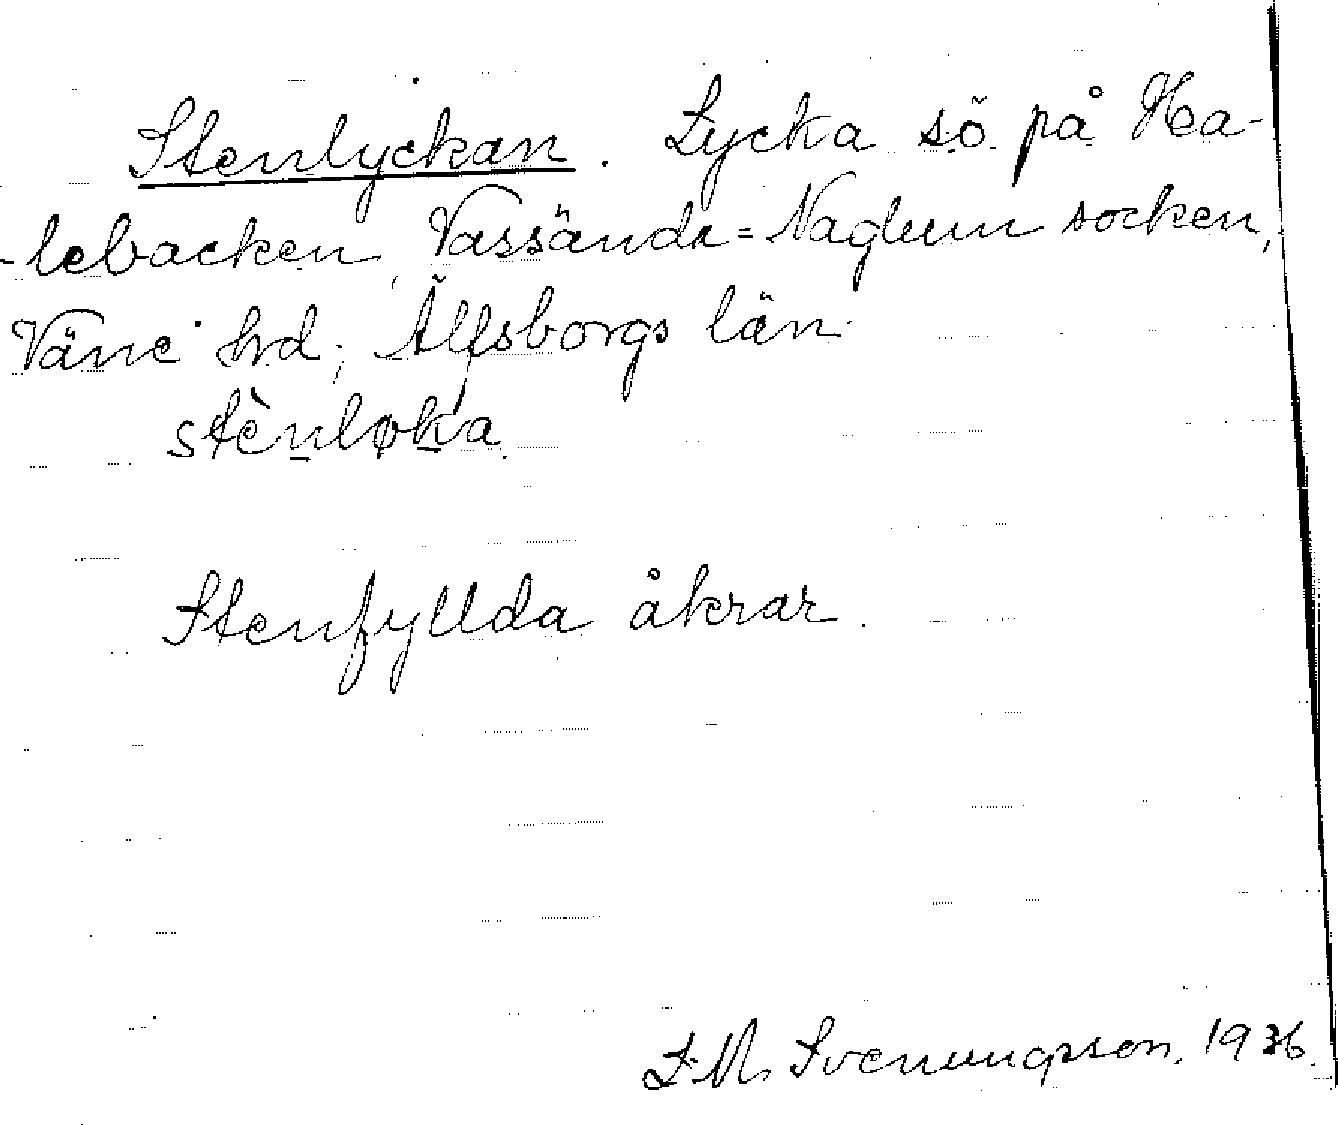 Stenlyckan. Lycka sö. på Ha-
-lebacken, Vassända=Naglum socken,
Väne hrd, Älfsborgs län.
stènløka
Stenfyllda åkrar.
L. M. Svenungsson. 1936.